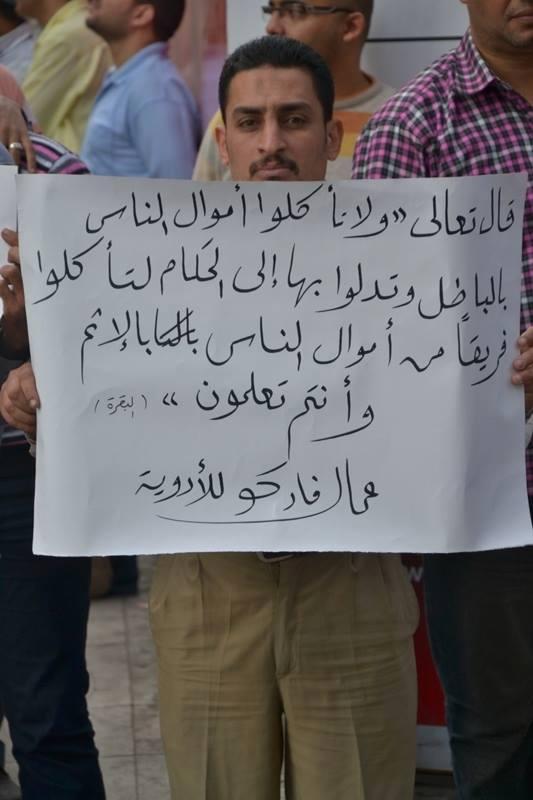 قال تعالى «ولا تأكلوا أموال الناس
بالباطل وتدلوا بها إلى الحكام لتأكلوا
فريقاً من أموال الناس بالإثم
وأنتم تعلمون » (البقرة)
عمال فاركو للأدوية